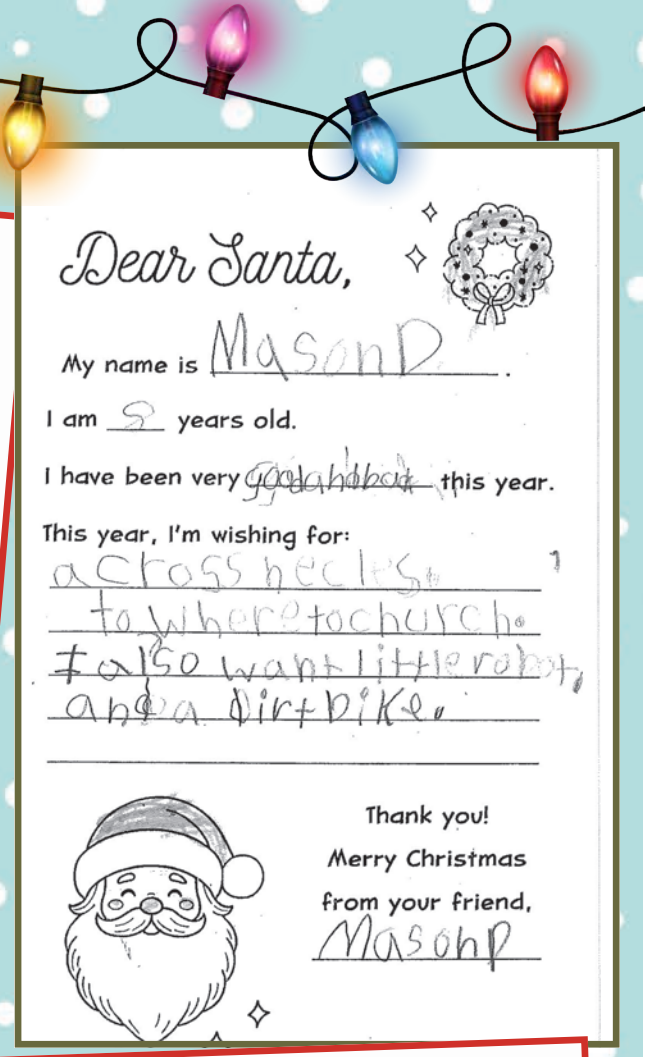 Dear Santa,
My name is Mason D.
I am 8 years old.
I have been very good and bad this year.
This year, I'm wishing for:
a cross necles.
to where to church.
I also want little robot,
and a Dirt bike.
Thank you!
Merry Christmas
from your friend,
Mason D